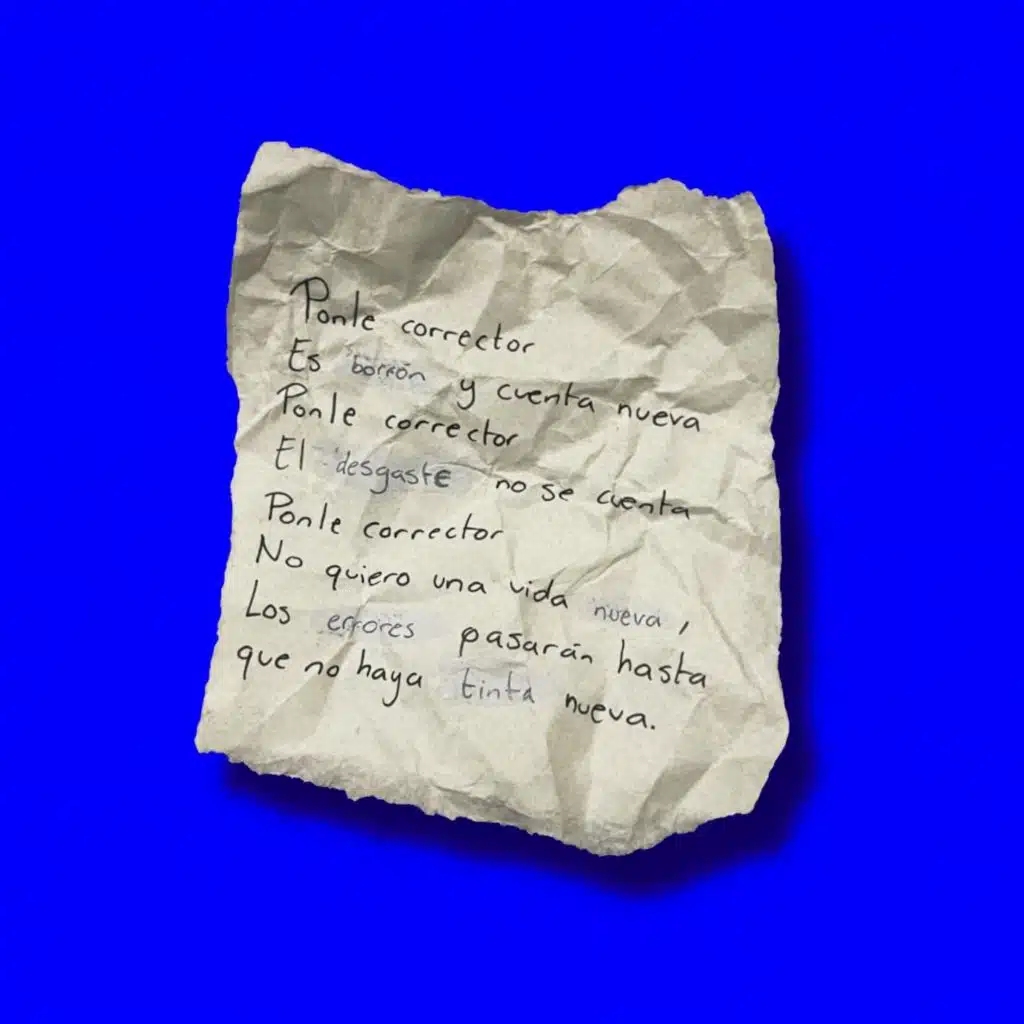 Ponle corrector
Es borrón y cuenta nueva
Ponle corrector
El desgaste no se cuenta
Ponle corrector
No quiero una vida nueva,
Los errores pasarán hasta
que no haya tinta nueva.